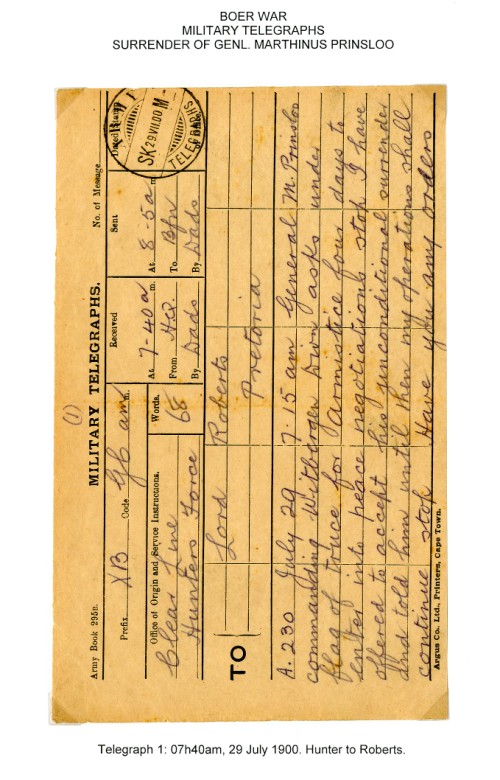 BOER WAR
MILITARY TELEGRAPHS
SURRENDER OF GENL. MARTHINUS PRINSLOO
(1)
Army Book 295B.
MILITARY TELEGRAPHS.
No. of Message
Prefix XB Code GB am m.
Words.
68
Received
At 7-40a m.
From HQ.
By Dads
Sent
At 8-5a m.
To Bfn
By Dads
Dated Stamp
TELEGRAPHS
SK 29.VII.00 M
Office of Origin and Service Instructions.
Clear Line
Hunters Force
TO
Lord Roberts
Pretoria
A.230 July 29 7.15 am General M. Prinsloo
commanding Witbergen Divn asks under
flag of truce for armistice four days to
enter into peace negotiations stop I have
offered to accept his unconditional surrender
And told him until then my operations shall
continue stop Have you any orders
Argus Co. Ltd., Printers, Cape Town.
Telegraph 1: 07h40am, 29 July 1900. Hunter to Roberts.